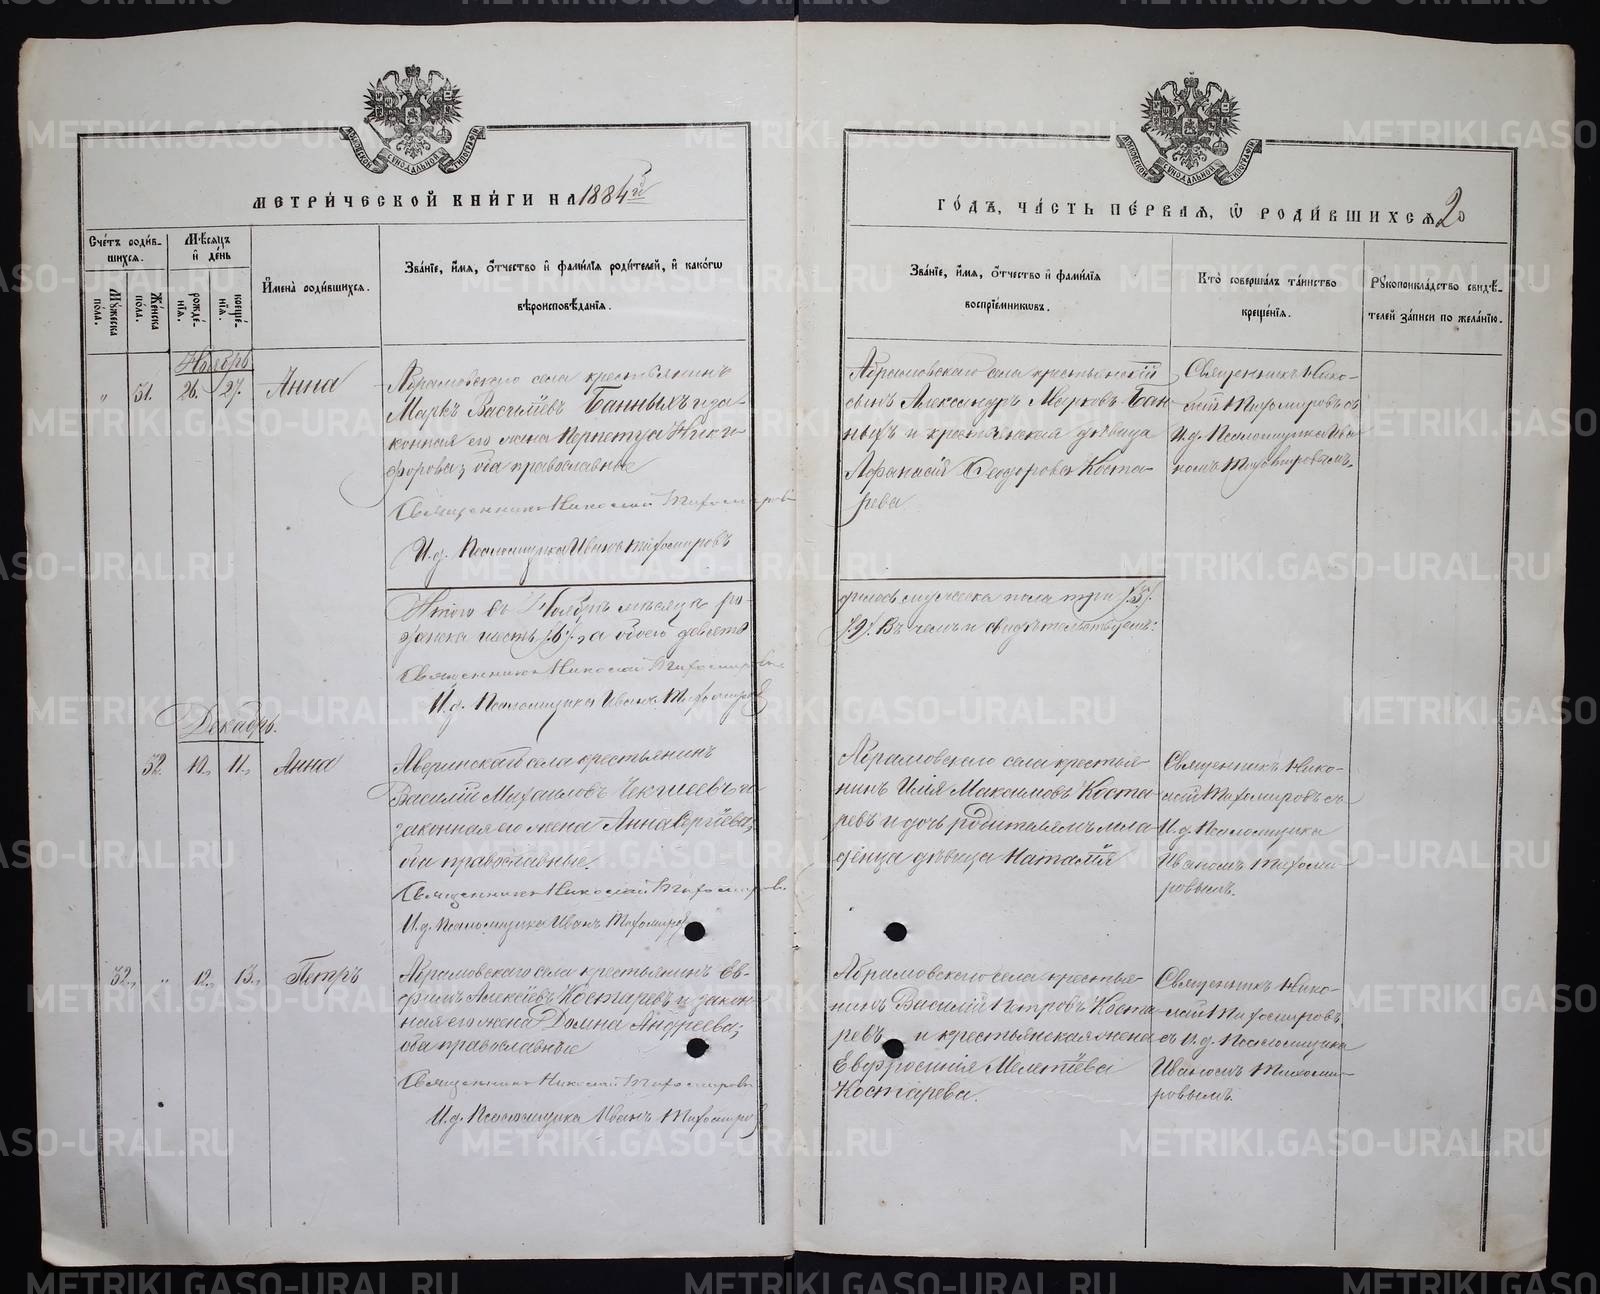 МЕТРИ́ЧЕСКОЙ КНИ́ГИ НА 1884й
ГО́ДЪ, ЧА́СТЬ ПЕ́РВАЯ, Ѡ РОДИ́ВШИХСЯ 20
Сче́тъ роди́в-
шихся.
Мꙋ́жеска по́ла.
Же́нска по́ла.
Мѣ́сяцъ
и де́нь
рожде́-
нїя.
креще́-
нїя.
И́мена роди́вшихся.
Зва́нїе, и́мя, о́тчество и фами́лїя роди́телей, и како́гѡ
вѣроисповѣ́данїя.
Зва́нїе, и́мя, о́тчество и фами́лїя
воспрїе́мникѡвъ.
Кто̀ соверша́лъ та́инство
креще́нїя.
Рꙋкоприкла́дство свидѣ́-
телей за́писи по жела́нїю.
Ноябрь
" 51. 26. 27. Анна
Абрамовскаго села крестьянинъ
Маркъ Васильевъ Банныхъ и за-
конная его жена Перпетуа Ники-
форова; оба православные
Священникъ Николай Тихомировъ
И.д. Псаломщика Иванъ Тихомировъ
Абрамовскаго села крестьянскій
сынъ Александръ Марковъ Бан-
ныхъ и крестьянская дѣвица
Афанасія Ѳеодорова Коста-
рева
Священникъ Нико-
лай Тихомировъ съ
И.д. Псаломщика Ива-
номъ Тихомировымъ.
Итого въ Ноябрѣ мѣсяцѣ ро-
дилось мужеска пола три /3/.
женска шесть /6/, а обоего девять
/9/. Въ чемъ и свидѣтельствуемъ:
Священникъ Николай Тихомировъ
И.д. Псаломщика Иванъ Тихомировъ
Декабрь.
52. 10. 11. Анна
Аверинскаго села крестьянинъ
Василій Михаиловъ и
законная его жена Анна Сергіева;
оба православные.
Священникъ Николай Тихомировъ
И.д. Псаломщика Иванъ Тихомировъ
Абрамовскаго села крестья-
нинъ Илія Максимовъ Коста-
ревъ и дочь родителямъ мла-
денца дѣвица Наталія
Священникъ Нико-
лай Тихомировъ съ
И.д. Псаломщика
Иваномъ Тихоми-
ровымъ.
32. " 12. 13. Петръ
Абрамовскаго села крестьянинъ Ев-
фимъ Алексѣевъ Костаревъ и закон-
ная его жена Домна Андреева;
оба православные
Священникъ Николай Тихомировъ
И.д. Псаломщика Иванъ Тихомировъ
Абрамовскаго села крестья-
нинъ Василій Петровъ Коста-
ревъ и крестьянская жена
Евфросинія Мелетіева
Костарева.
Священникъ Нико-
лай Тихомировъ
съ И.д. Псаломщика
Иваномъ Тихоми-
ровымъ.
METRIKI.GASO-URAL.RU